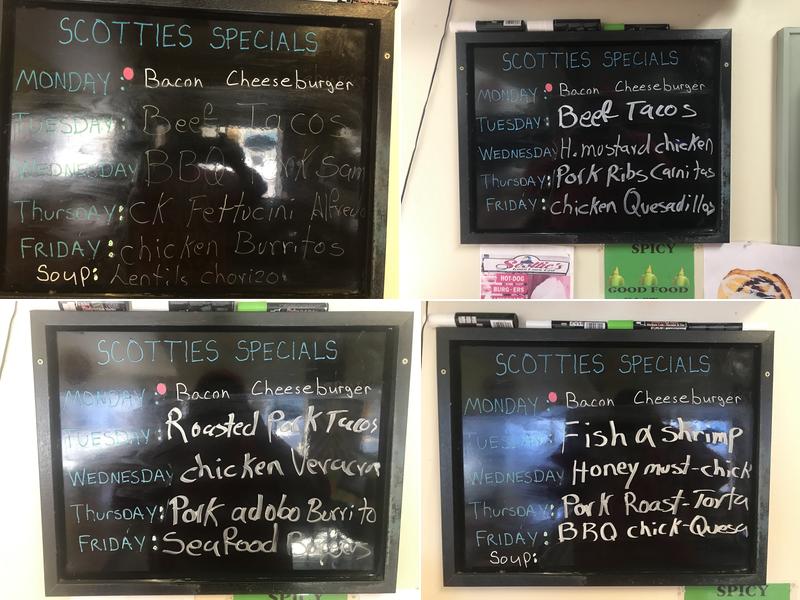 SCOTTIES SPECIALS
MONDAY: Bacon Cheeseburger
TUESDAY: Beef Tacos
WEDNESDAY BBQ Pork Sam
THURSDAY: CK Fettucini Alfredo
FRIDAY: chicken Burritos
Soup: Lentils chorizo
SCOTTIES SPECIALS
MONDAY: Bacon Cheeseburger
TUESDAY: Beef Tacos
WEDNESDAY H. mustard chicken
THURSDAY: Pork Ribs Carnitas
FRIDAY: chicken Quesadillas
Scottie's
HOT-DOG
BURG-ERS
SPICY
GOOD FOOD
SCOTTIES SPECIALS
MONDAY: Bacon Cheeseburger
TUESDAY: Roasted Pork Tacos
WEDNESDAY chicken Veracru
THURSDAY: Pork adobo Burrito
FRIDAY: Seafood Burgers
SCOTTIES SPECIALS
MONDAY: Bacon Cheeseburger
TUESDAY: Fish & shrimp
WEDNESDAY Honey must-chick
THURSDAY: Pork Roast-Torta
FRIDAY: BBQ chick-Quesa
Soup:
SPICY
SPICY